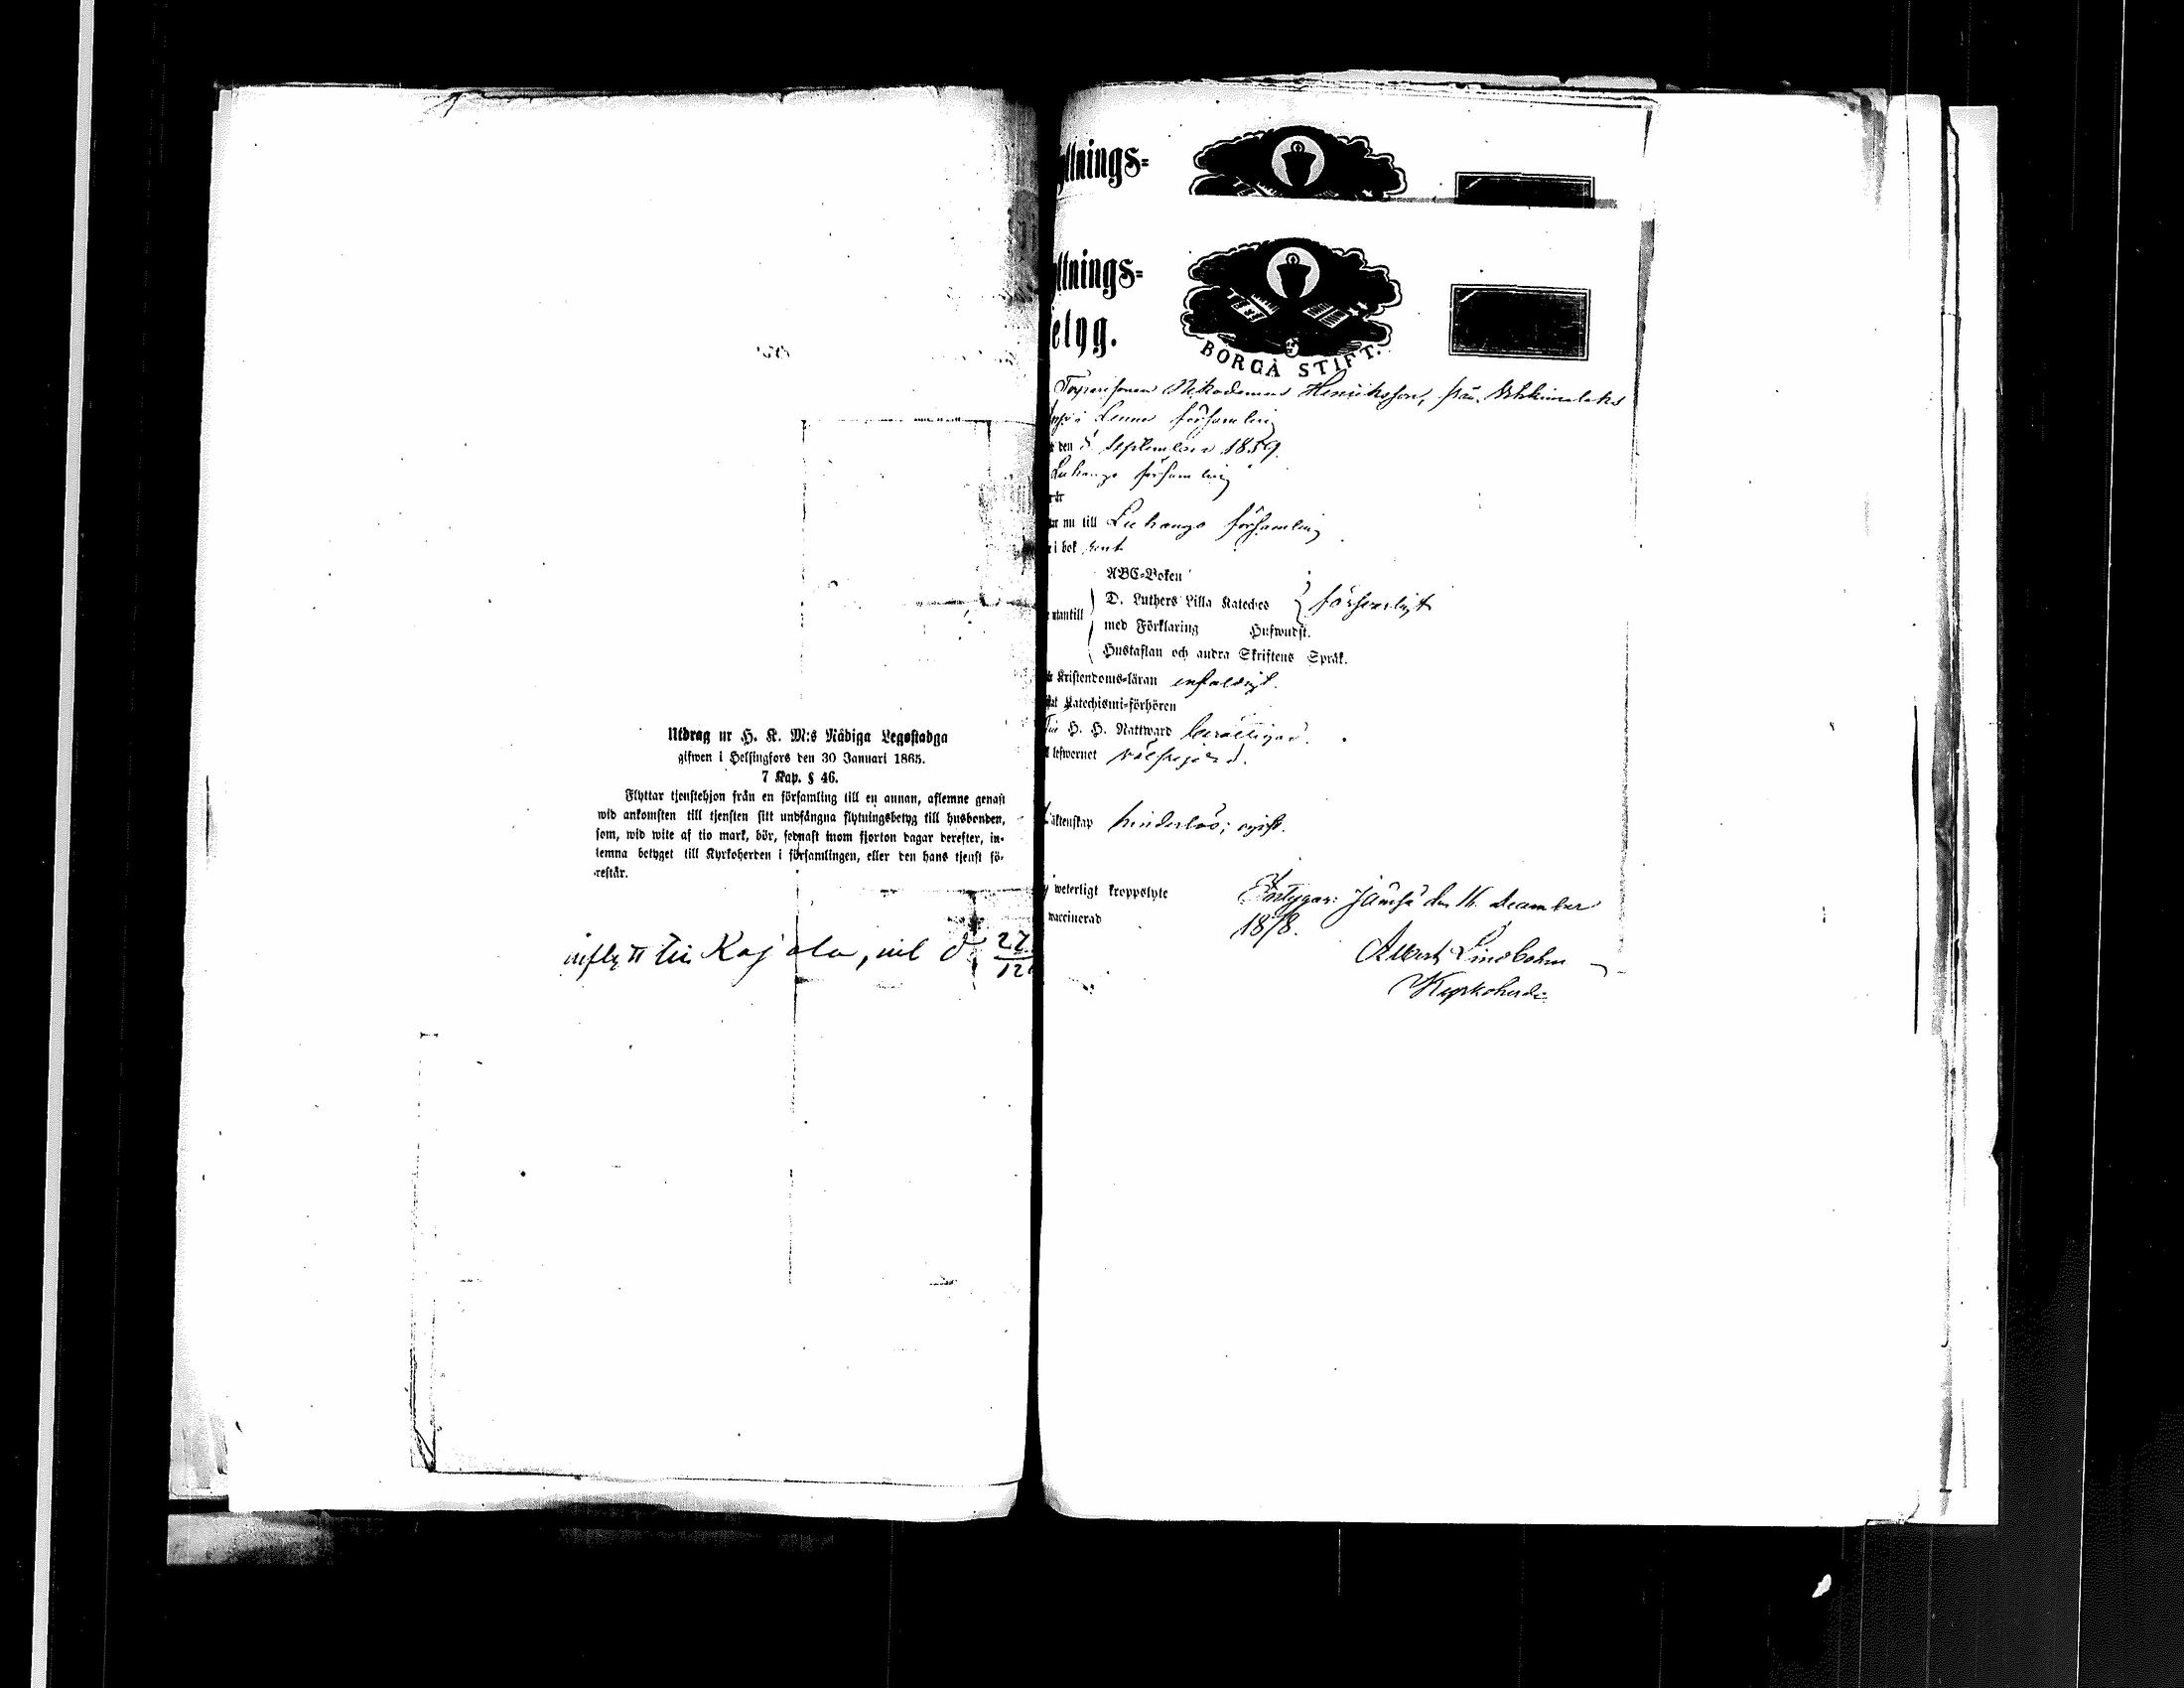 Utdrag ur H. K. M:s Nådiga Legostadga
gifwen i Helsingfors den 30 Januari 1865.
7 Kap. § 46.
Flyttar tjenstehjon från en församling till en annan, aflemne genast
wid ankomsten till tjensten sitt undfångna flytningsbetyg till husbonden,
som, wid wite af tio mark, bör, sednast inom fjorton dagar derefter, in-
lemna betyget till Kyrkoherden i församlingen, eller den hans tjenst fö-
restår.
inflytt till Kajala, 27
12
ttnings=
ttnings=
etyg.
BORGÅ STIFT.
Torparesonen Nikodemus Henriksson, från
i församling
den September 1859.
Luhango församling
är
nu till Luhango församling
i bok
ABC=Boken
D. Luthers Lilla Kateches försvarligt
utantill
med Förklaring Hufwudst.
Hustaflan och andra Skriftens Språk.
Kristendoms=läran enfaldigt.
Katechismi=förhören
H. H. Nattward berättigad.
lefwernet välfrejdad.
äktenskap hinderlös; ogift.
weterligt kroppslyte
Jämsä den 16 december
waccinerad
1878.
Albert Lindbohm
Kyrkoherde